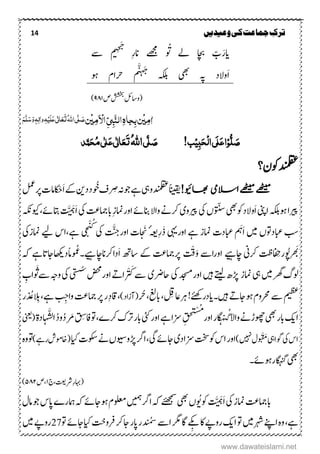 ترک جماعت کی وعیدیں 14
یارب بچا لے تُو مجھے نارِ جہیم سے
اَولاد پہ بھی بلکہ جہنَّم حرام ہو
(وسائلِ بخشش ص ۹۸۱)
اٰمِیْن بِجَاہِ النَّبِیِّ الْاَمِیْن صَلَّی اللہُ تَعَالٰی عَلَیْہِ وَاٰلِہٖ وَسَلَّم
صَلُّوْا عَلَی الْحَبِیْب! صَلَّی اللہُ تَعَالٰی عَلٰی مُحَمَّد
عقلمند کون؟
میٹھے میٹھے اسلامی بھائیو! یقیناً عقلمند وہی ہے جو نہ صرف خُود دین کے اَحکام پر عمل
پیرا ہو بلکہ اپنی اَولاد کو بھی سنّتوں کی پیروی کرنے والا بنائے اور نمازِ باجماعت کی اَہَمِّیَّت بتائے، کیونکہ
سب عبادتوں میں اَہَم عبادت نماز ہے اور یہی ذریعۂ نجات اور جنَّت کی کُنجی ہے، اس لیے نماز کی
بھرپُور حفاظت کرنی چاہیے اور اسے وَقْت پر جماعت کے ساتھ ادا کرنا چاہیے۔ عُمُوماً دیکھا جاتا ہے کہ
لوگ گھر میں ہی نماز پڑھ لیتے ہیں اور مسجد کی حاضری سے کتراتے اور محض سُستی کی وجہ سے ثوابِ
عظیم سے محروم ہو جاتے ہیں۔ یاد رکھئے! ہر عاقِل، بالغ، حُر (آزاد)، قادر پر جماعت واجب ہے، بلاعُذر
ایک بار بھی چھوڑنے والا گنہگار اور مستحقِ سزا ہے اور کئی بار ترک کرے، تو فاسِق مَردُودُ الشَّہادَۃ (یعنی
اس کی گواہی قبول نہیں) اور اس کو سخت سزا دی جائے گی، اگر پڑوسیوں نے سکوت کیا (خاموش رہے) تو وہ
بھی گنہگار ہوئے۔
(بہارِ شریعت، ج۱، ص ۵۸۲)
باجماعت نماز کی اَہَمِّیَّت کو یُوں بھی سمجھئے کہ اگر ہمیں معلوم ہو جائے کہ ہمارے پاس جو مال
ہے، وہ اپنے شہر میں تو ایک روپے کا بکے گا مگر اسے سمندر پار جا کر فروخت کیا جائے تو 27 روپے میں
www.dawateislami.net